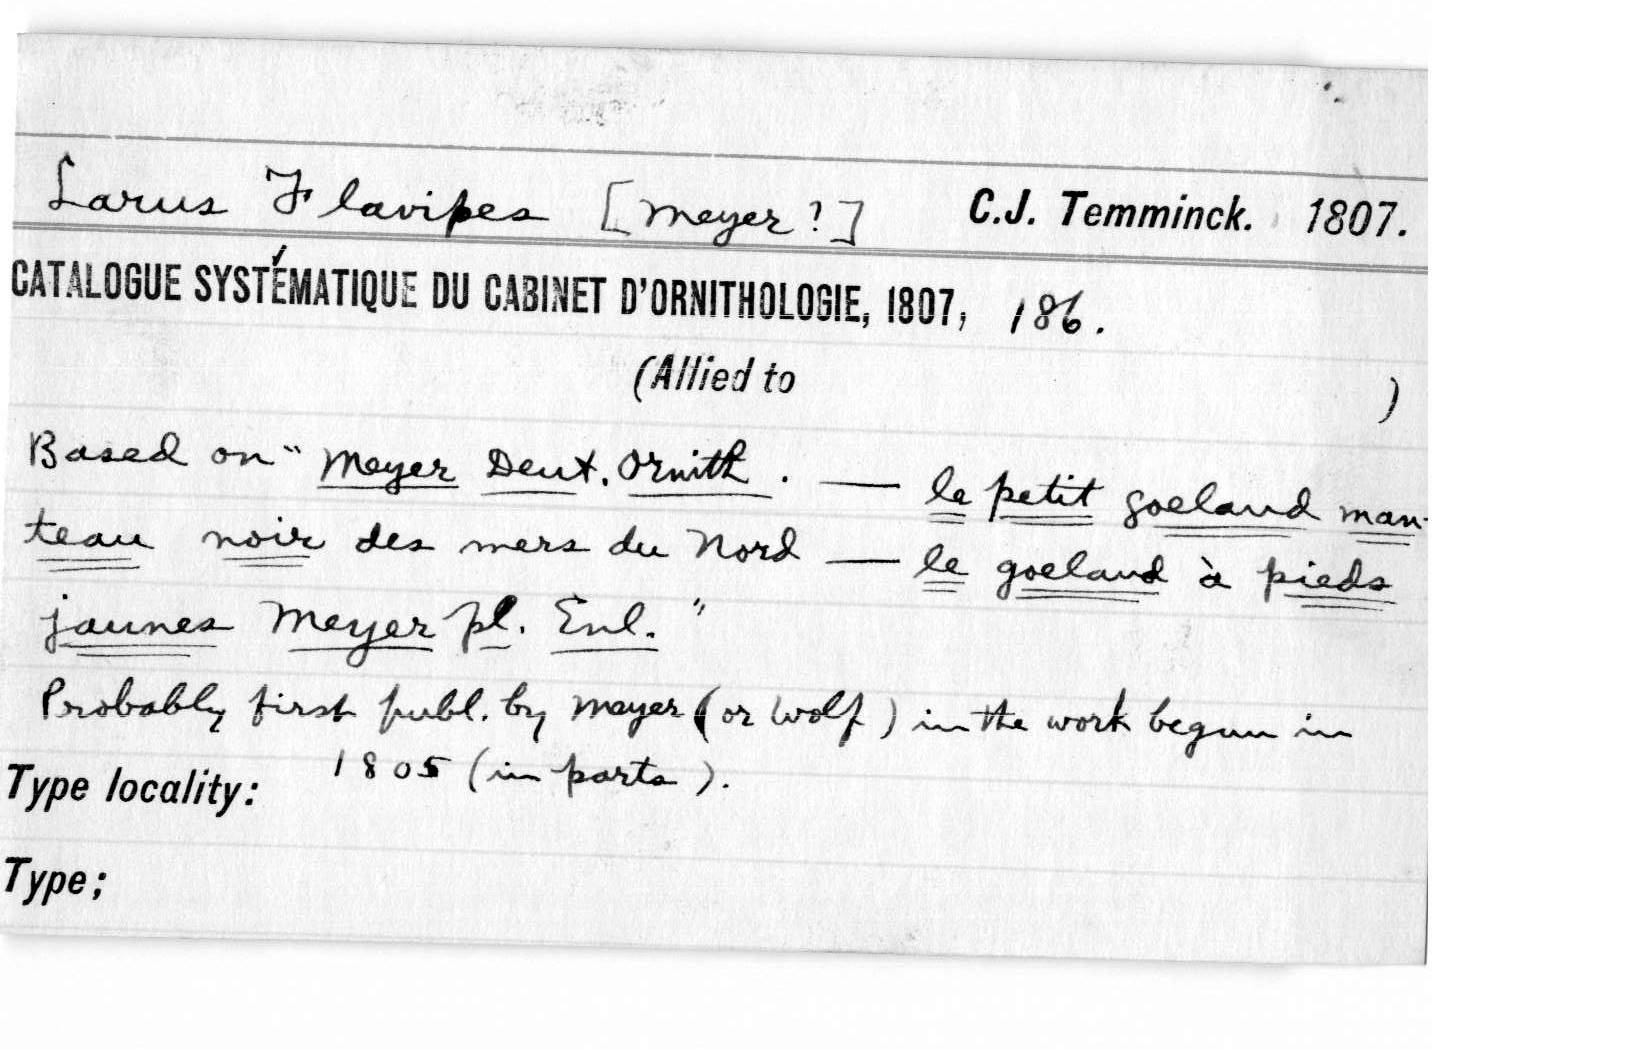 Larus Flavipes [Meyer?] C.J. Temminck. 1807.
CATALOGUE SYSTÉMATIQUE DU CABINET D'ORNITHOLOGIE, 1807, 186.
(Allied to )
Based on " Meyer Deut. Ornith. — le petit goeland man-
teau noir des mers du Nord — le goeland à pieds
jaunes Meyer pl. Enl."
Probably first publ. by Meyer (or Wolf) in the work begun in
1805 (in parts).
Type locality:
Type;